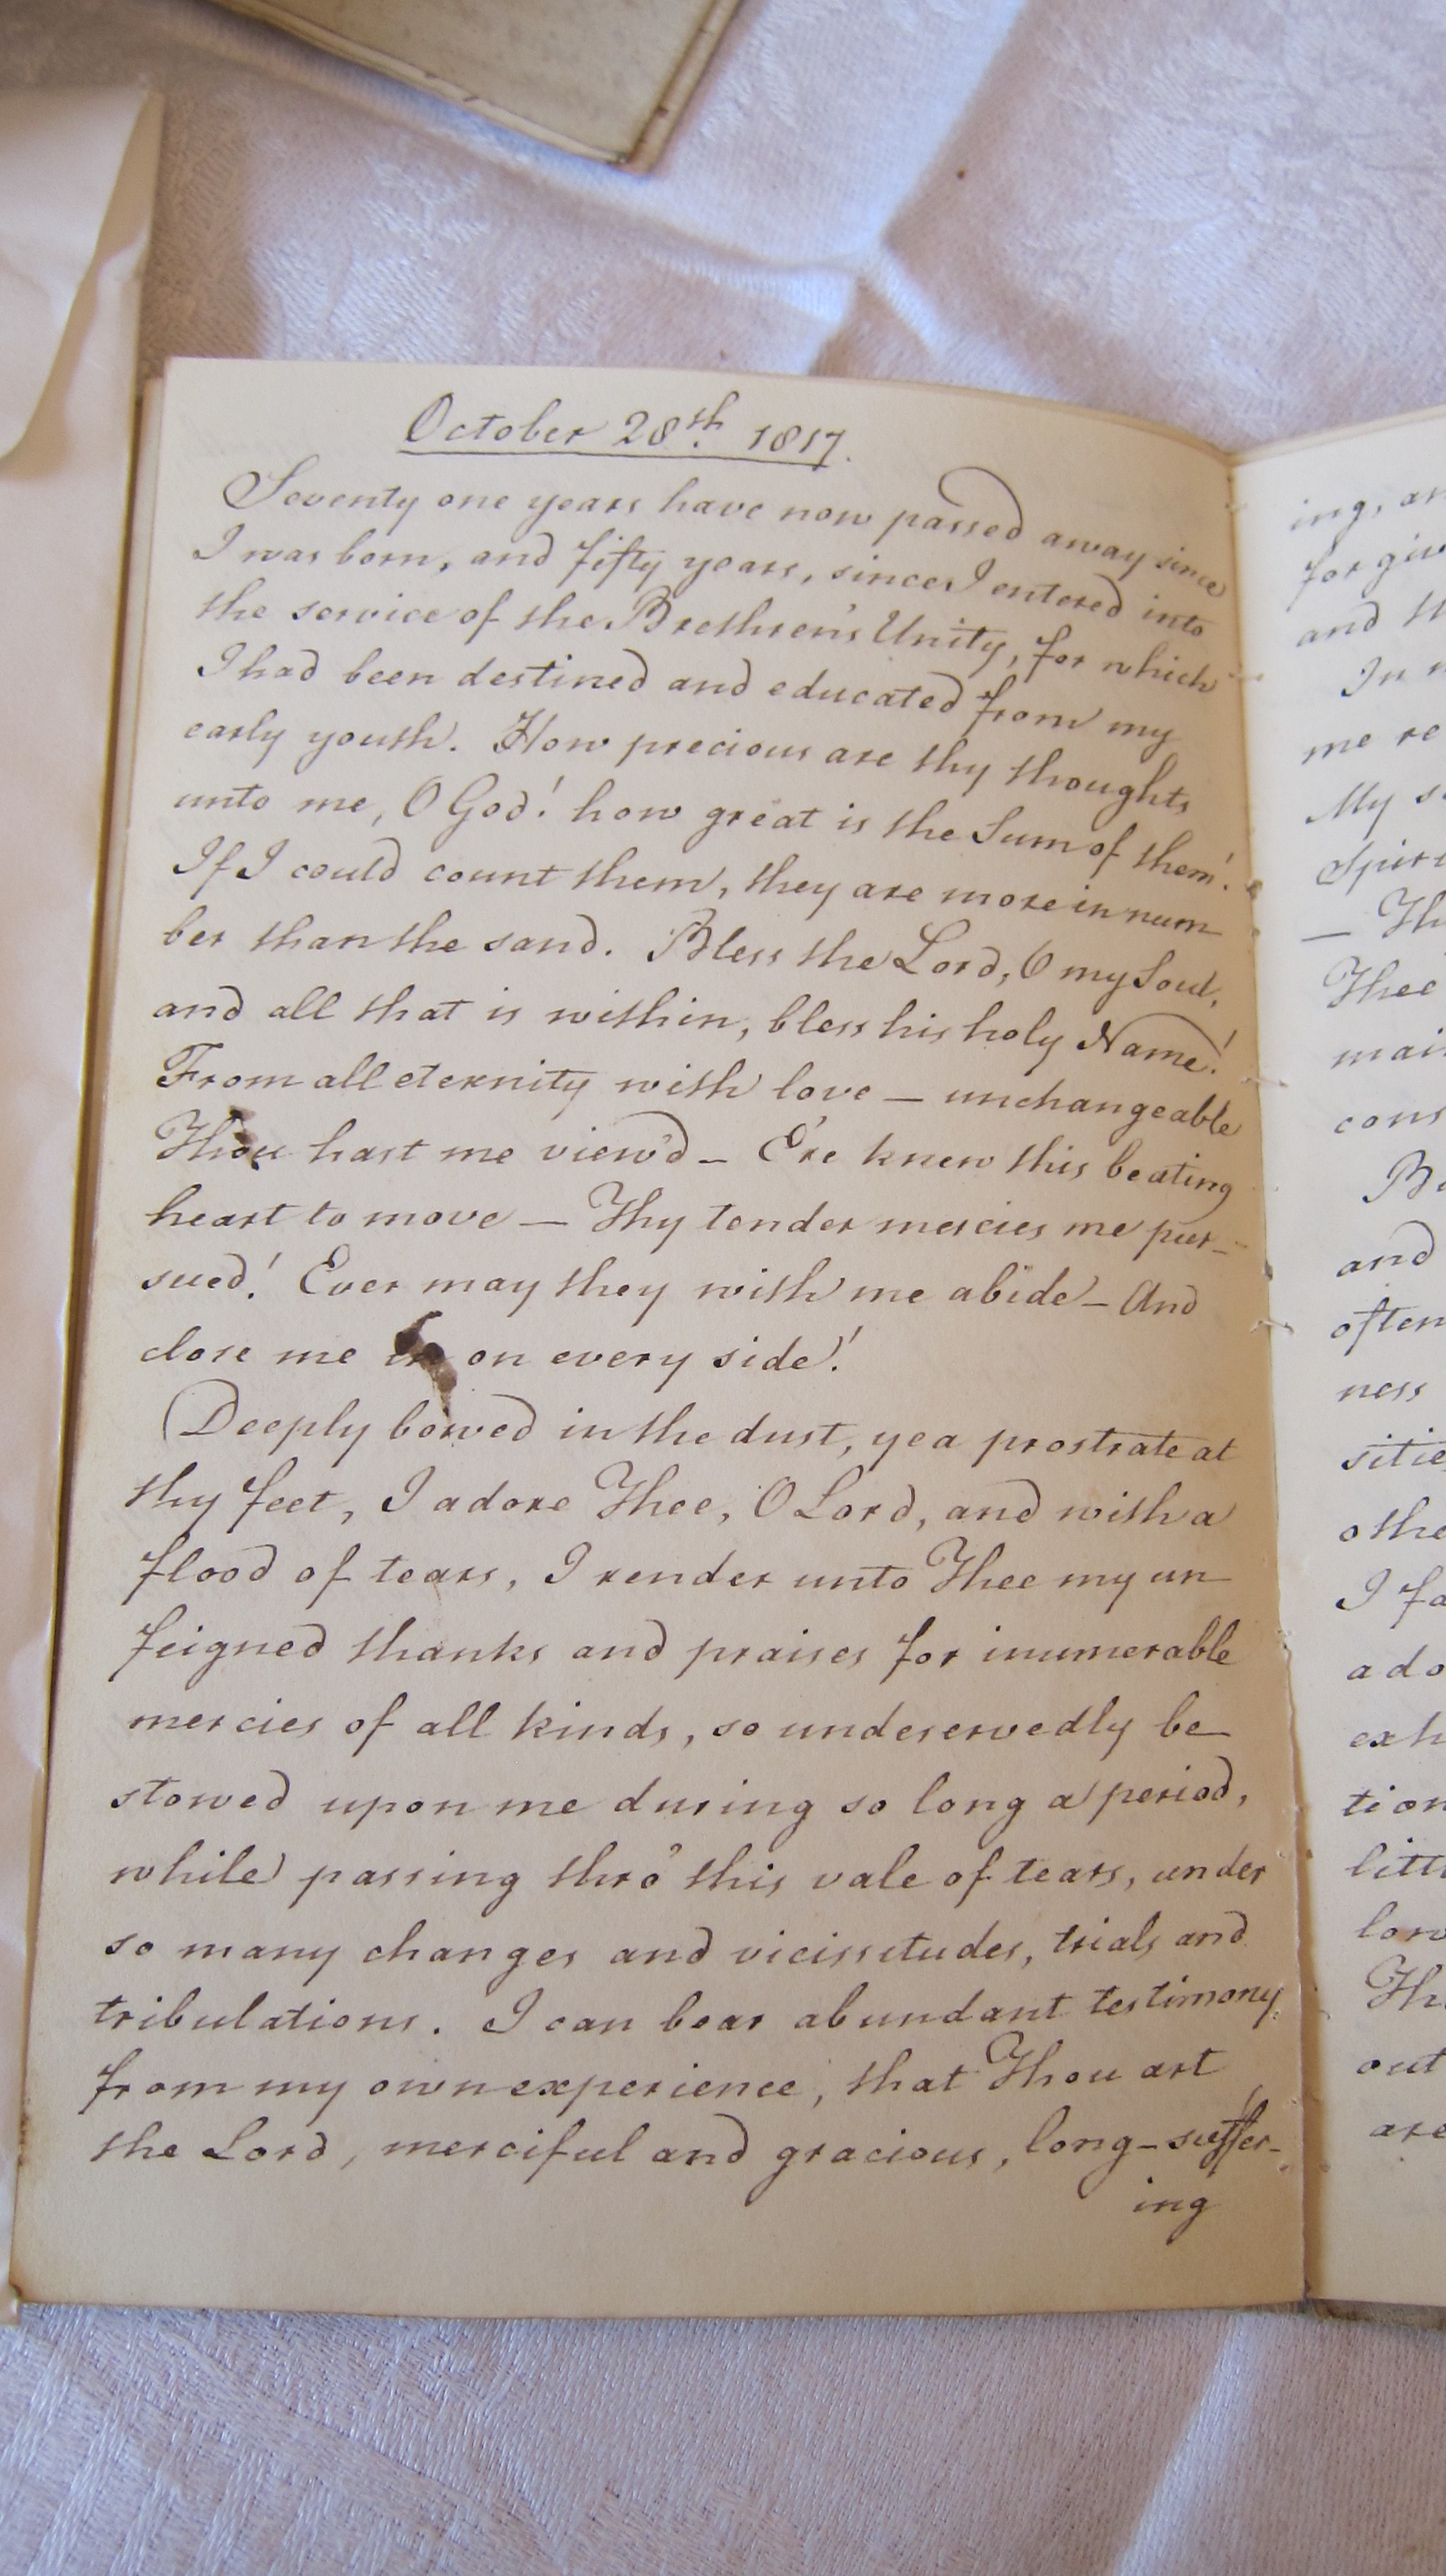 October 28th. 1817.
Seventy one years have now passed away since
I was born, and fifty years, since I entered into
the service of the Brethren's Unity, for which
I had been destined and educated from my
early youth. How precious are thy thoughts
unto me, O God! how great is the Sum of them!
If I could count them, they are more in num
ber than the sand. Bless the Lord, O my Soul,
and all that is within, bless his holy Name!
From all eternity with love — unchangeable
Thou hast me view'd — E're knew this beating
heart to move — Thy tender mercies me pur-
sued! Ever may they with me abide — And
close me in on every side!
Deeply bowed in the dust, yea prostrate at
thy feet, I adore Thee, O Lord, and with a
flood of tears, I render unto Thee my un
feigned thanks and praises for inumerable
mercies of all kinds, so undeservedly be
stowed upon me during so long a period,
while passing thro' this vale of tears, under
so many changes and vicissitudes, trials and
tribulations. I can bear abundant testimony
from my own experience, that Thou art
the Lord, merciful and gracious, long-suffer-
ing
ing, an
forgiv
and th
In m
me re
My s
Spiri
— Th
Thee
main
cons
Be
and
often
ness
sitie
othe
I fa
ado
exh
tion
littl
low
Th
out
are